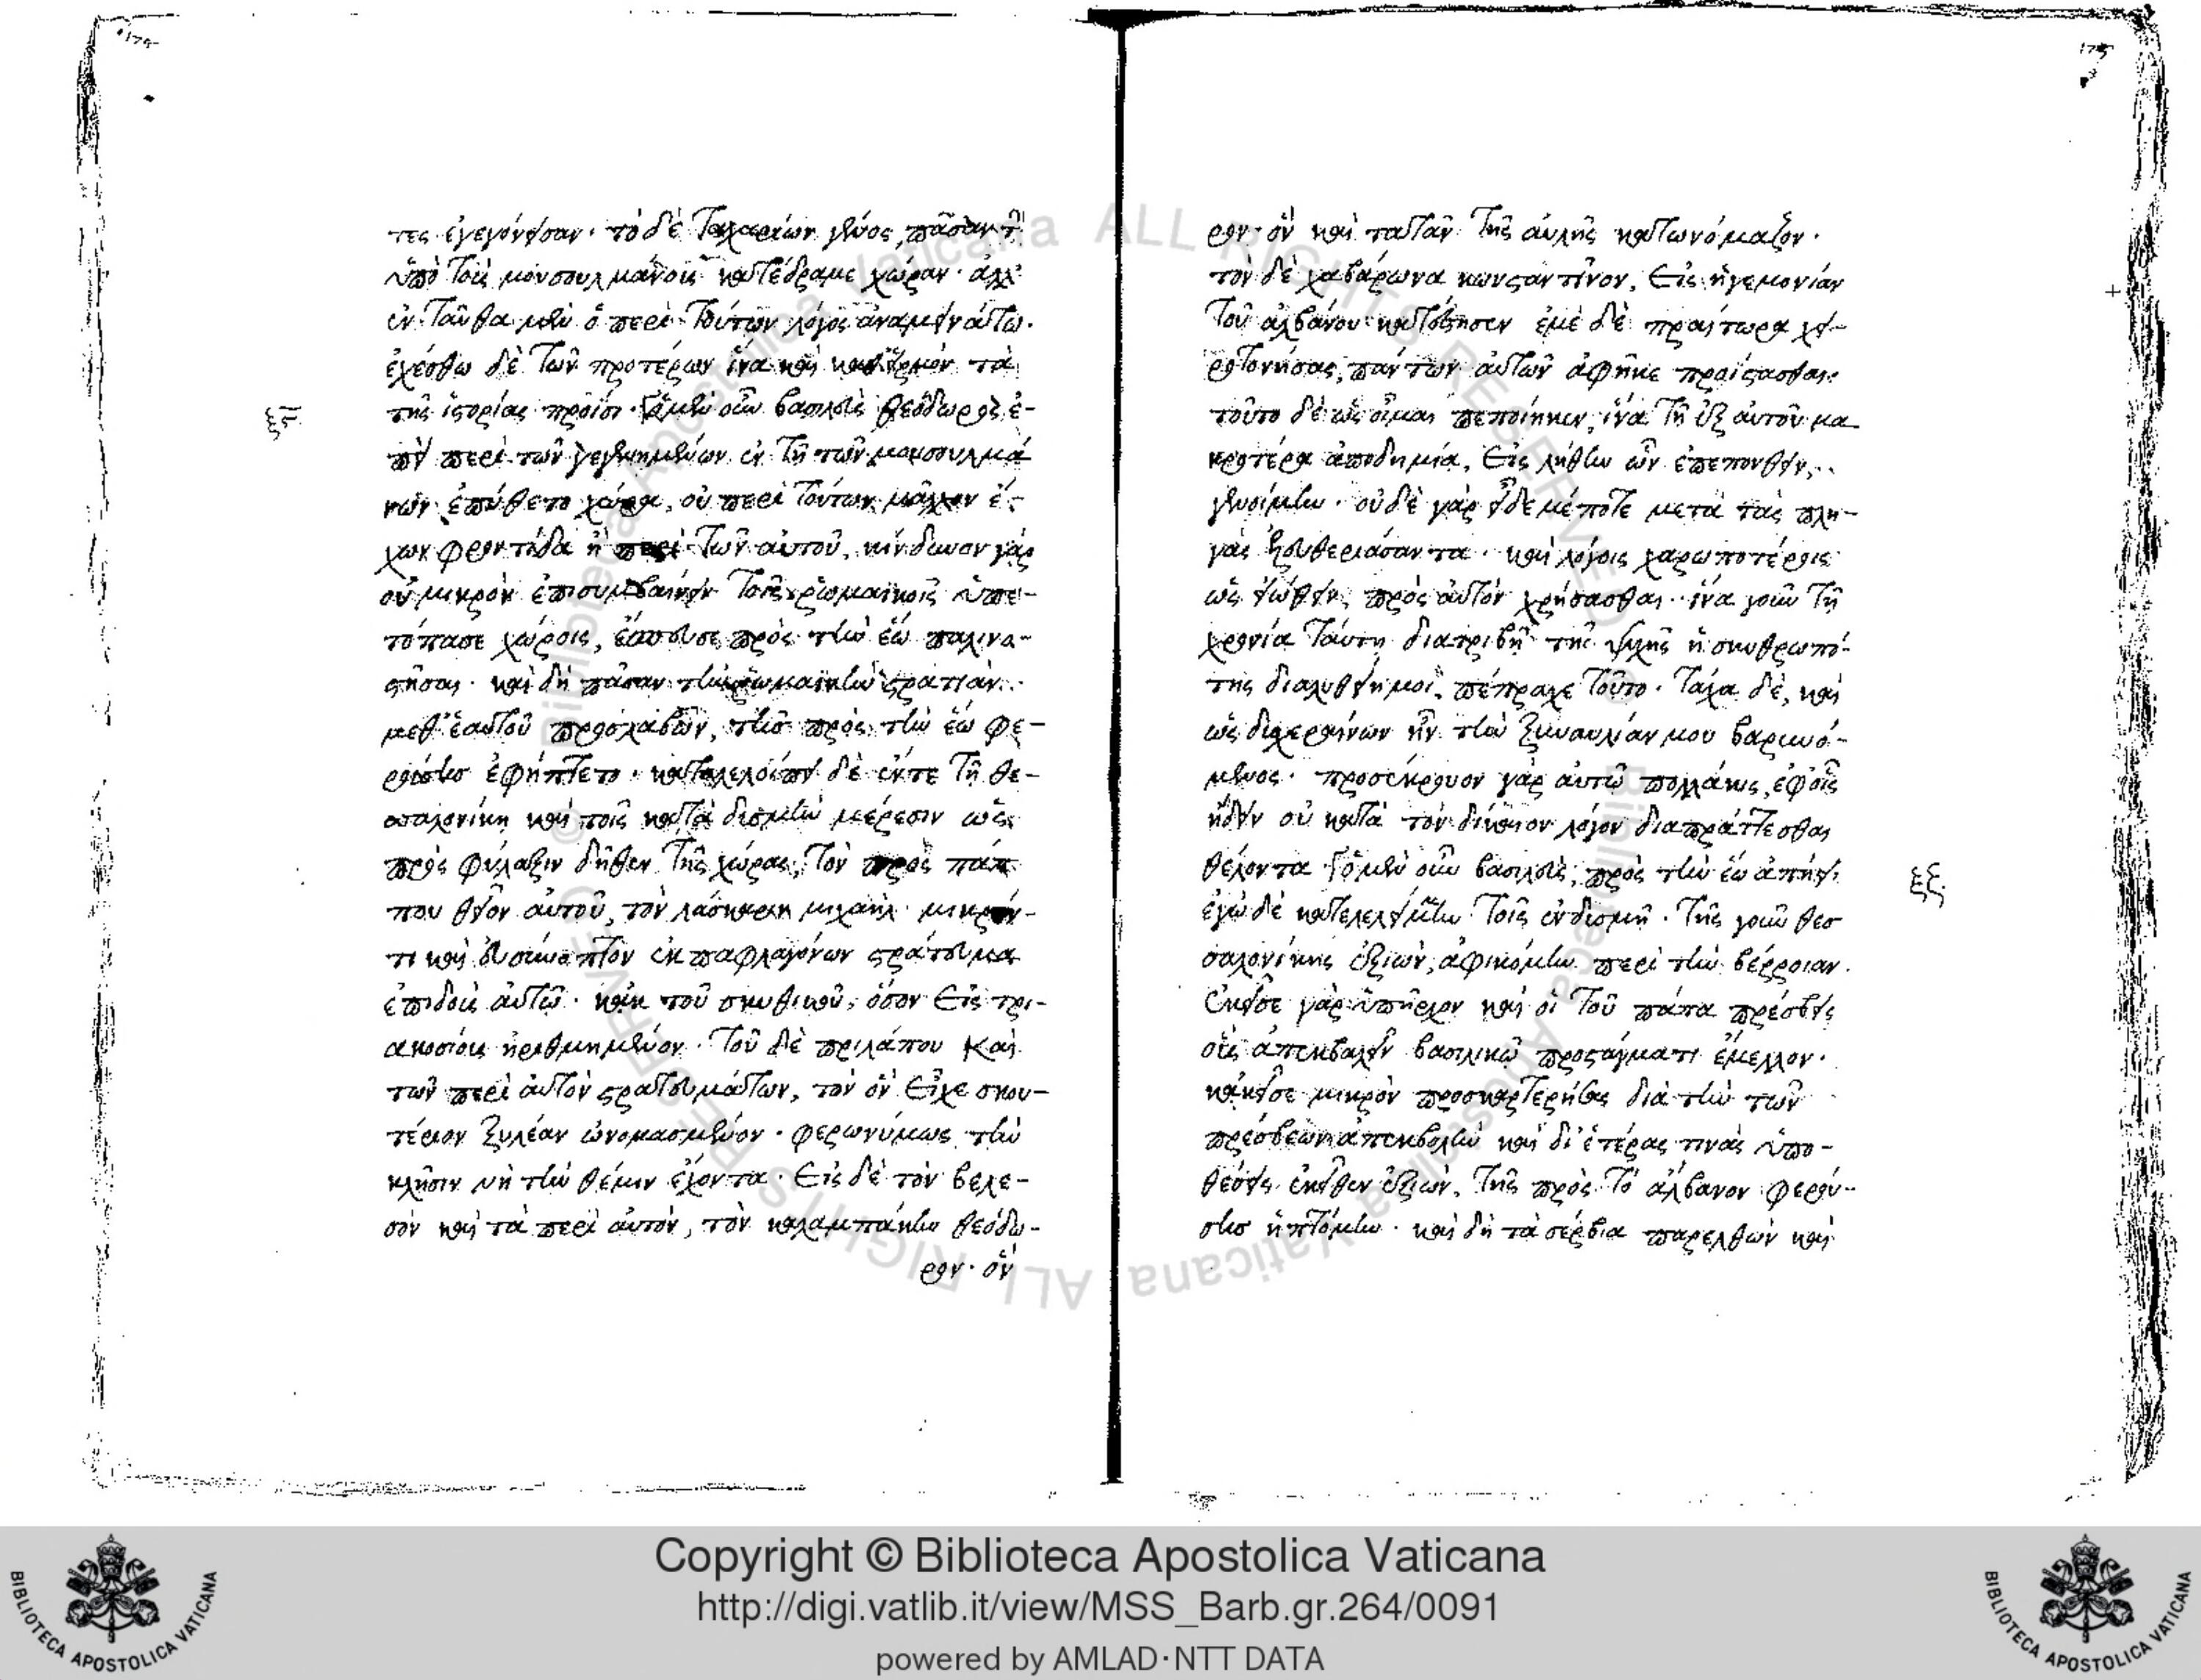 174
τες ἐγεγόνεισαν· τὸ δὲ Ταχαρίων γένος, πᾶσαν τὴν
ὑπὸ τοῖς μουσουλμάνοις κατέδραμε χώραν· ἀλλ'
ἐνταῦθα μὲν ὁ περὶ τούτων λόγος ἀναμεινάτω.
ἐχέσθω δὲ τῶν προτέρων ἵνα καὶ καθ' εἱρμὸν τὰ
τῆς ἱστορίας προΐοι· ὁ μὲν οὖν βασιλεὺς θεόδωρος ἐ-
ξε
πεὶ περὶ τῶν γεγενημένων ἐν τῇ τῶν μουσουλμά
νων ἐπύθετο χώρα, οὐ περὶ τούτων μᾶλλον ἔ-
χων φροντίδα ἢ περὶ τῶν αὐτοῦ, κίνδυνον γὰρ
οὐ μικρὸν ἐπισυμβαίνειν τοῖς ῥωμαϊκοῖς ὑπε-
τόπασε χώροις, ἔσπευσε πρὸς τὴν ἕω παλινο-
στῆσαι· καὶ δὴ πᾶσαν τὴν ῥωμαϊκὴν στρατιὰν
μεθ' ἑαυτοῦ προσλαβὼν, τῆς πρὸς τὴν ἕω φε-
ρούσης ἐφήπτετο· καταλελοίπει δὲ ἔν τε τῇ θε-
σσαλονίκη καὶ τοῖς κατὰ δυσμὴν μέρεσιν ὡς
πρὸς φύλαξιν δῆθεν τῆς χώρας, τὸν πρὸς πάπ
που θεῖον αὐτοῦ, τὸν λάσκαριν μιχαὴλ· μικρόν-
τι καὶ δυσίνοπτον ἐκ παφλαγόνων στράτευμα
ἐπιδοὺς αὐτῷ· κἀκ τοῦ σκυθικοῦ, ὅσον εἰς τρι-
ακοσίους ἠριθμημένον· τοῦ δὲ πριλάπου καὶ
τῶν περὶ αὐτὸν στρατευμάτων, τὸν ὃν εἶχε σκου-
τέριον ξυλέαν ὠνομασμένον· φερωνύμως τὴν
κλῆσιν νὴ τὴν θέμιν ἔχοντα· εἰς δὲ τὸν βελε-
σὸν καὶ τὰ περὶ αὐτὸν, τὸν καλαμπάκην θεόδω-
ρον· ὃν
175
ρον· ὃν καὶ τατᾶν τῆς αὐλῆς κατωνόμαζον·
τὸν δὲ χαβάρωνα κωνσταντῖνον, εἰς ἡγεμονίαν
τοῦ ἀλβάνου κατέστησεν ἐμὲ δὲ πραίτωρα χει-
ροτονήσας, πάντων αὐτῶν ἀφῆκε προΐστασθαι·
τοῦτο δὲ ὡς οἶμαι πεποίηκεν, ἵνα τῇ ἐξ αὐτοῦ μα
κροτέρα ἀποδημία, εἰς λήθην ὧν ἐπεπόνθειν,
γενοίμην· οὐδὲ γὰρ εἶδε μέ ποτε μετὰ τὰς πλη-
γὰς ἐλευθεριάσαντα· καὶ λόγοις χαρωποτέροις
ὡς εἰώθειν πρὸς αὐτὸν χρήσασθαι· ἵνα γοῦν τῇ
χρονία ταύτη διατριβῇ τῆς ψυχῆς ἡ σκυθρωπό-
της διαλυθείη μοι, πέπραχε τοῦτο· τάχα δὲ, καὶ
ὡς δυσχεραίνων ἦν τὴν ξυναυλίαν μου βαρυνό-
μενος· προσέκρουον γὰρ αὐτῷ πολλάκις, ἐφ' οἷς
ᾔδειν οὐ κατὰ τὸν δίκαιον λόγον διαπράττεσθαι
θέλοντα· ὁ μὲν οὖν βασιλεὺς, πρὸς τὴν ἕω ἀπῄει·
ξξ
ἐγὼ δὲ κατελελείμμην τοῖς ἐν δυσμῇ· τῆς γοῦν θεσ
σαλονίκης ἐξιὼν, ἀφικόμην περὶ τὴν βέρροιαν.
ἐκεῖσε γὰρ ὑπῆρχον καὶ οἱ τοῦ πάπα πρέσβεις
οὓς ἀπεκβαλεῖν βασιλικῷ προστάγματι ἔμελλον.
κἀκεῖσε μικρὸν προσκαρτερήσας διὰ τὴν τῶν
πρέσβεων ἀπεκβολὴν καὶ δι' ἑτέρας τινὰς ὑπο-
θέσεις ἐκεῖθεν ἐξιὼν, τῆς πρὸς τὸ ἄλβανον φερού-
σης ἡπτόμην· καὶ δὴ τὰ σέρβια παρελθὼν καὶ
Copyright © Biblioteca Apostolica Vaticana
http://digi.vatlib.it/view/MSS_Barb.gr.264/0091
powered by AMLAD·NTT DATA
BIBLIOTECA APOSTOLICA VATICANA
BIBLIOTECA APOSTOLICA VATICANA